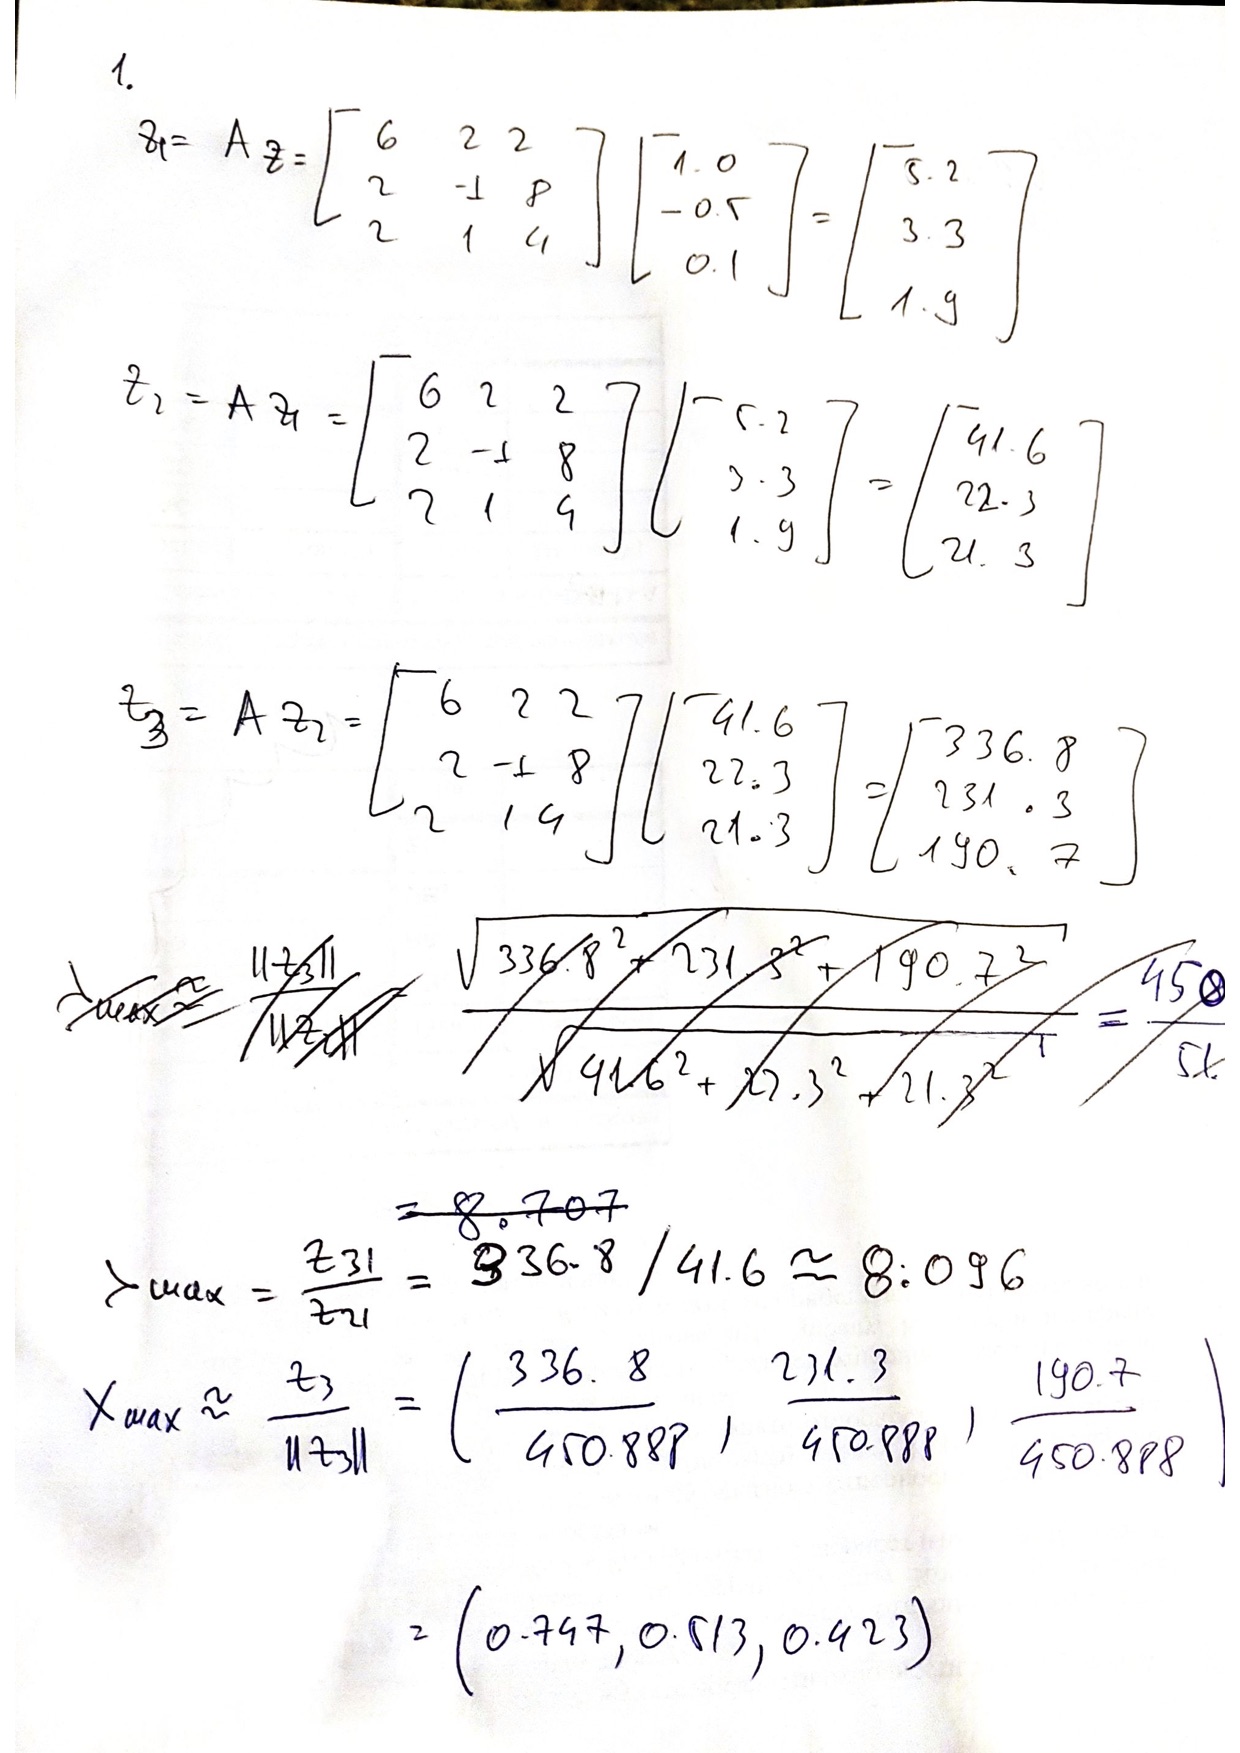 1.
z₁ = A z = [6 2 2; 2 -1 8; 2 1 4] [1.0; -0.5; 0.1] = [5.2; 3.3; 1.9]
z₂ = A z₁ = [6 2 2; 2 -1 8; 2 1 4] [5.2; 3.3; 1.9] = [41.6; 22.3; 21.3]
z₃ = A z₂ = [6 2 2; 2 -1 8; 2 1 4] [41.6; 22.3; 21.3] = [336.8; 231.3; 190.7]
λmax ≈ ||z₃|| / ||z₂|| √(336.8² + 231.3² + 190.7²) / √(41.6² + 22.3² + 21.3²) = 450 / 51.
= 8.707
λmax = z₃₁ / z₂₁ = 336.8 / 41.6 ≈ 8.096
Xmax ≈ z₃ / ||z₃|| = (336.8 / 450.888, 231.3 / 450.888, 190.7 / 450.888)
= (0.747, 0.513, 0.423)